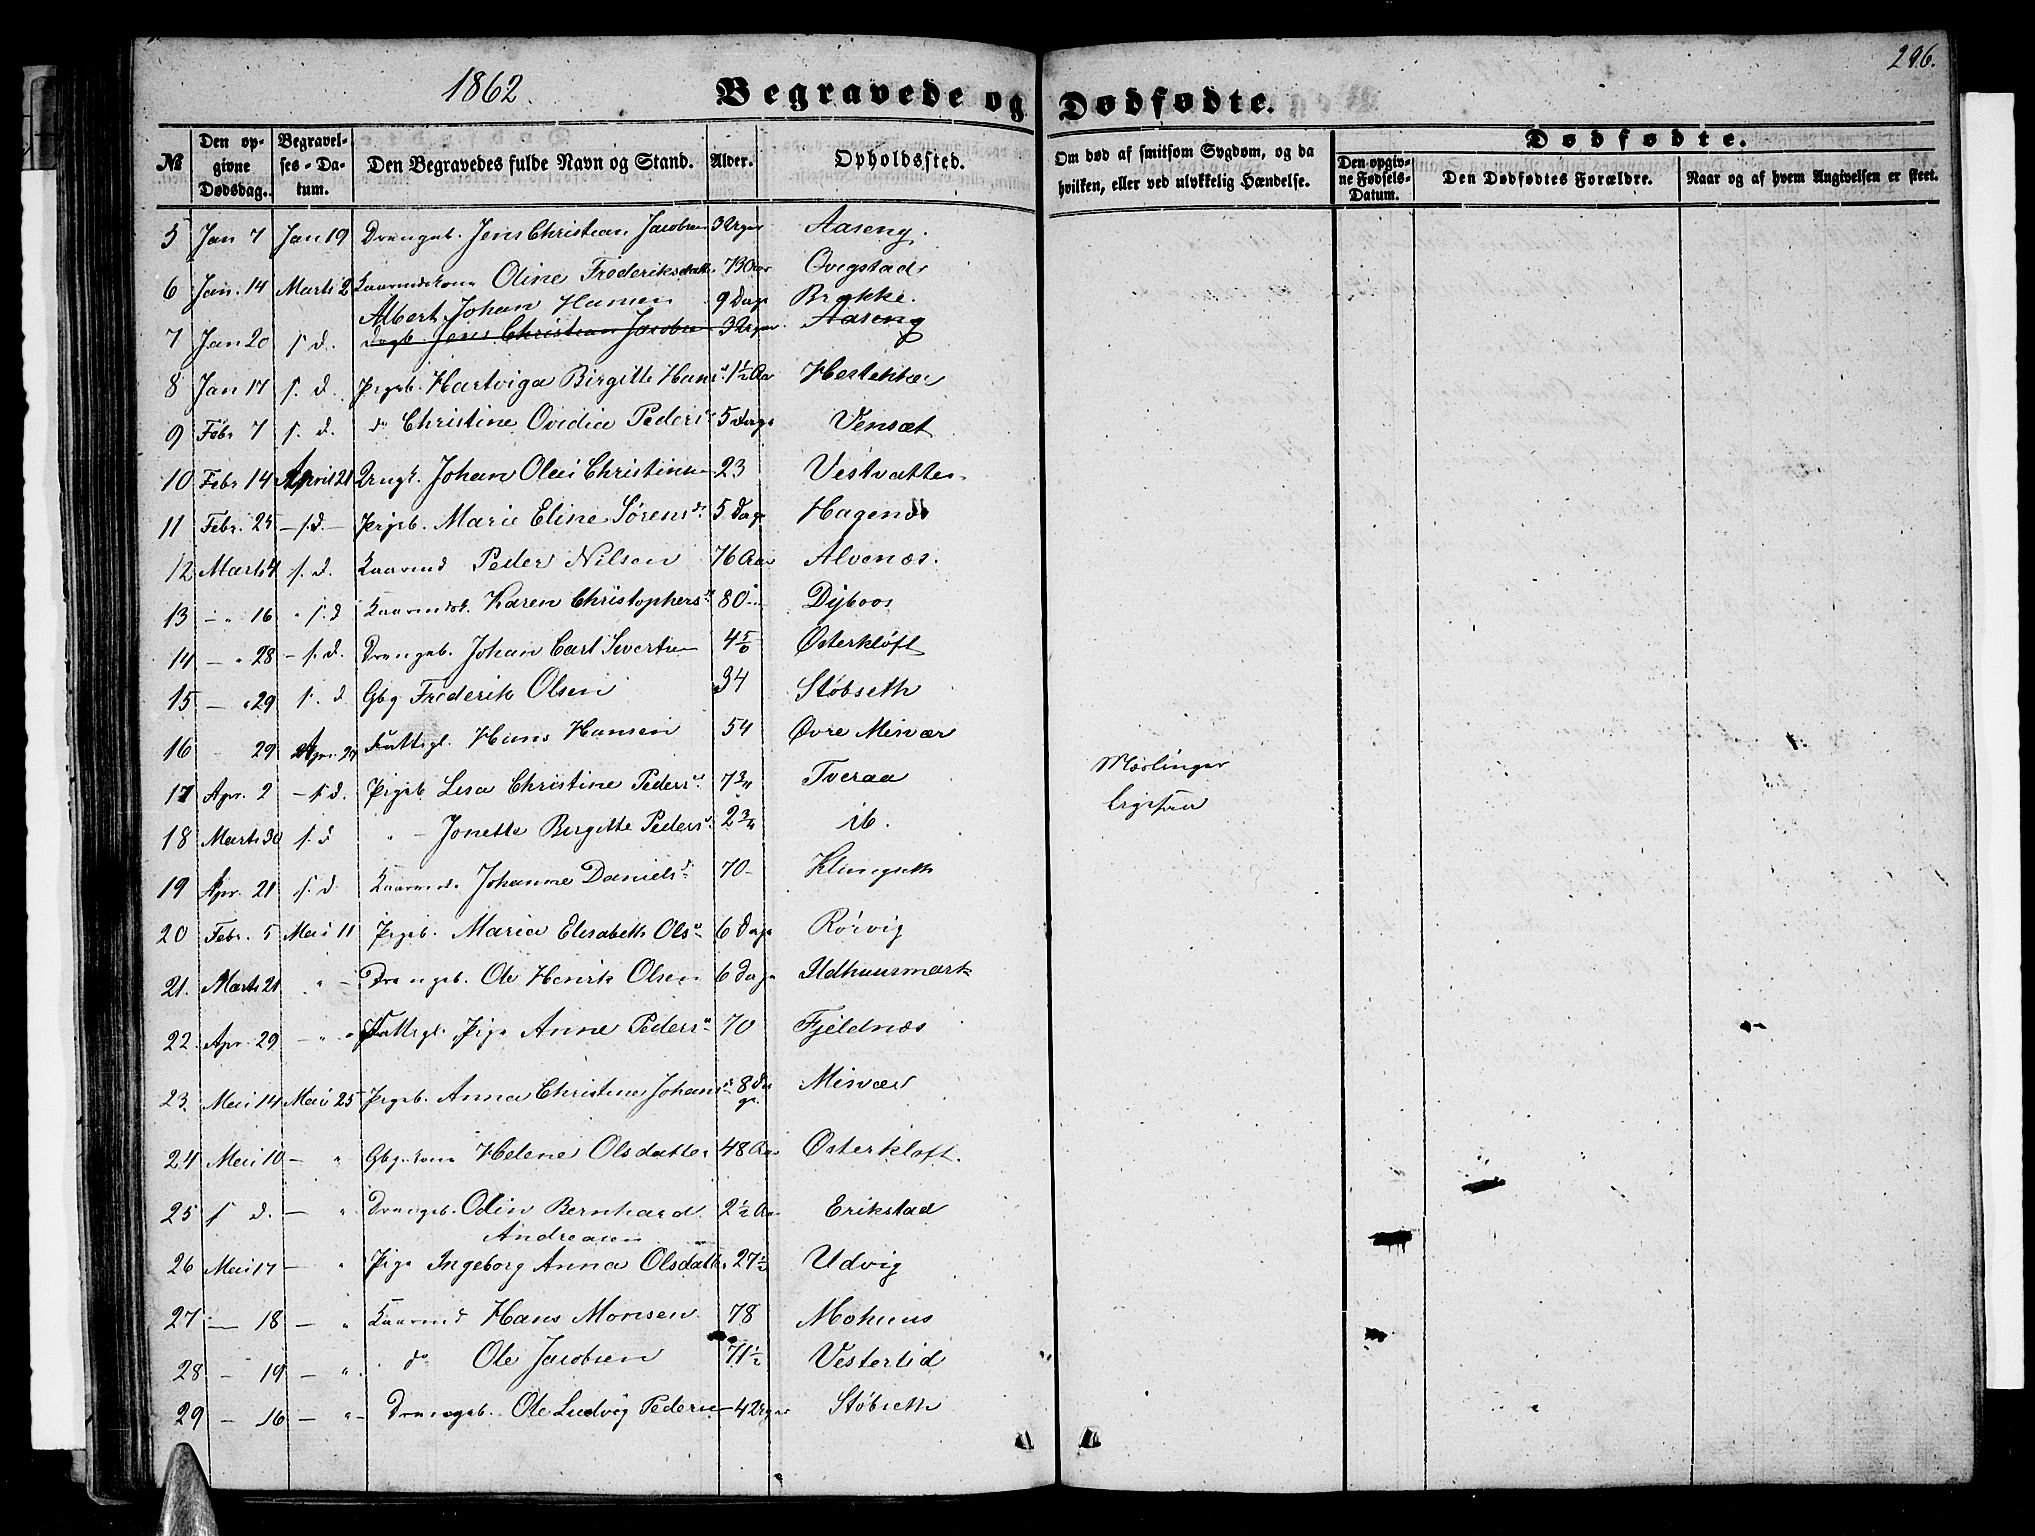 1862. Begravede og Dødfødte. 296.
№ Den opgivne Dødsdag. Begravelses-Datum. Den Begravedes fulde Navn og Stand. Alder. Opholdssted. Om død af smitsom Sygdom, og da hvilken, eller ved ulykkelig Hændelse. Dødfødte. Den opgivne Fødsels-Datum. Den Dødfødtes Forældre. Naar og af hvem Angivelsen er skeet.
5 Jan 7 Jan 19 Drengeb. Jens Christian Jacobsen 3 Uger Aaseng.
6 Jan. 14 Marts 2 Kaarmdskone Oline Frederiksdatt. 73 Aar Qvigstad
Albert Johan Hansen 9 Dage Brække.
7 Jan 20 s. d. Jens Christian Jacobsen 3 Uger. Aaseng
8 Jan 17 s. d. Pigeb. Hartviga Birgitte Hans d. 1½ Aar
9 Febr 7 s. d. do Christine Ovidia Peders d 5 Dage Vensæt
10 Febr 14 April 21 Johan Olai Christinsen 23 Vestvatten
11 Febr. 25 - s. d. - Pigeb. Marie Eline Sørens d. 5 Dage Hagenæs
12 Marts 4 s. d. Kaarmd Peder Nilsen 76 Aar Alvenæs.
13 - " 16 " s. d Kaarmdsk. Karen Christophers d 80 Dyboos
14 - " 28 - s. d. Drengeb. Johan Carl Sivertsen 4 5/6 Østerkløft
15 - " 29 s. d Gbg Frederik Olsen 34 Støbseth
16 - 29 Apr. 27 Fattigl. Hans Hansen 54 Øvre Misvær
17 Apr. 2 - s. d. Pigeb Lesa Christine Peders d 7 3/4 Tveraa Mæslinger
18 Marts 30 s. d " - Jonette Birgitte Peders d. 2 3/4 ib. ligesaa
19 Apr. 21 s. d. Johanne Daniels d. 70 - Klungseth
20 Febr. 5 Mai 11 Pigeb. Maria Elisabeth Ols d 6 Dage Rørvig
21. Marts 21 " - Drengeb. Ole Henrik Olsen 6 Dage Udhuusmark
22. Apr. 29 - " " Fattigl. Pige Anne Peders d 70 Fjeldnæs
23. Mai 14 Mai 25 Pigeb. Anna Christine Johans d. 8 Dage Misvær
24 Mai 10 - " Gbgs kone Helene Olsdatter 48 Aar Østerkløft.
25 s. d. - " Drengeb. Odin Bernhard 2½ Aar Erikstad
Andreasen
26 Mai 17 - " Pige Ingeborg Anna Olsdatter 27½ Udvig
27 - 18 - " Kaarmd Hans Monsen 78 Mohuus
28 - 19 - " do Ole Jacobsen 71½ Vesterlid
29 - 16 - " - Drengeb. Ole Ludvig Pedersen - 4 Uger Støbseth